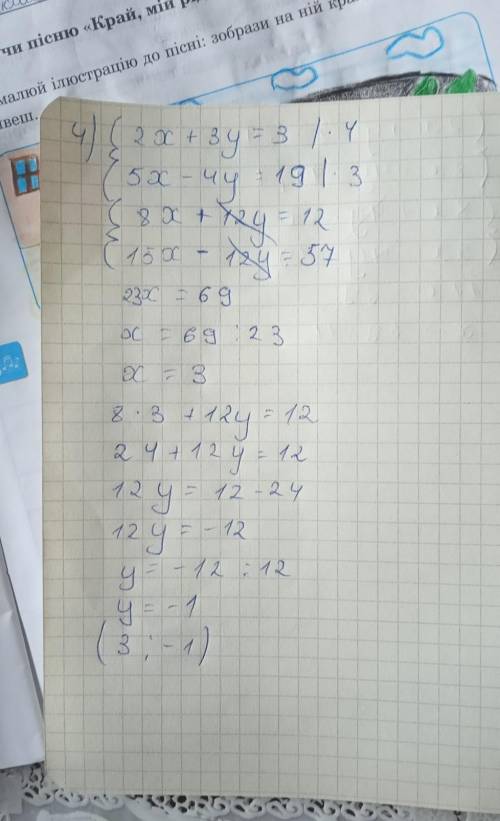 чи пісню «Край, мій р
малюй ілюстрацію до пісні: зобрази на ній кра
ивеш.
4) { 2x + 3y = 3 | · 4
{ 5x - 4y = 19 | · 3
{ 8x + 12y = 12
{ 15x - 12y = 57
23x = 69
x = 69 : 23
x = 3
8 · 3 + 12y = 12
24 + 12y = 12
12y = 12 - 24
12y = -12
y = -12 : 12
y = -1
(3 ; -1)